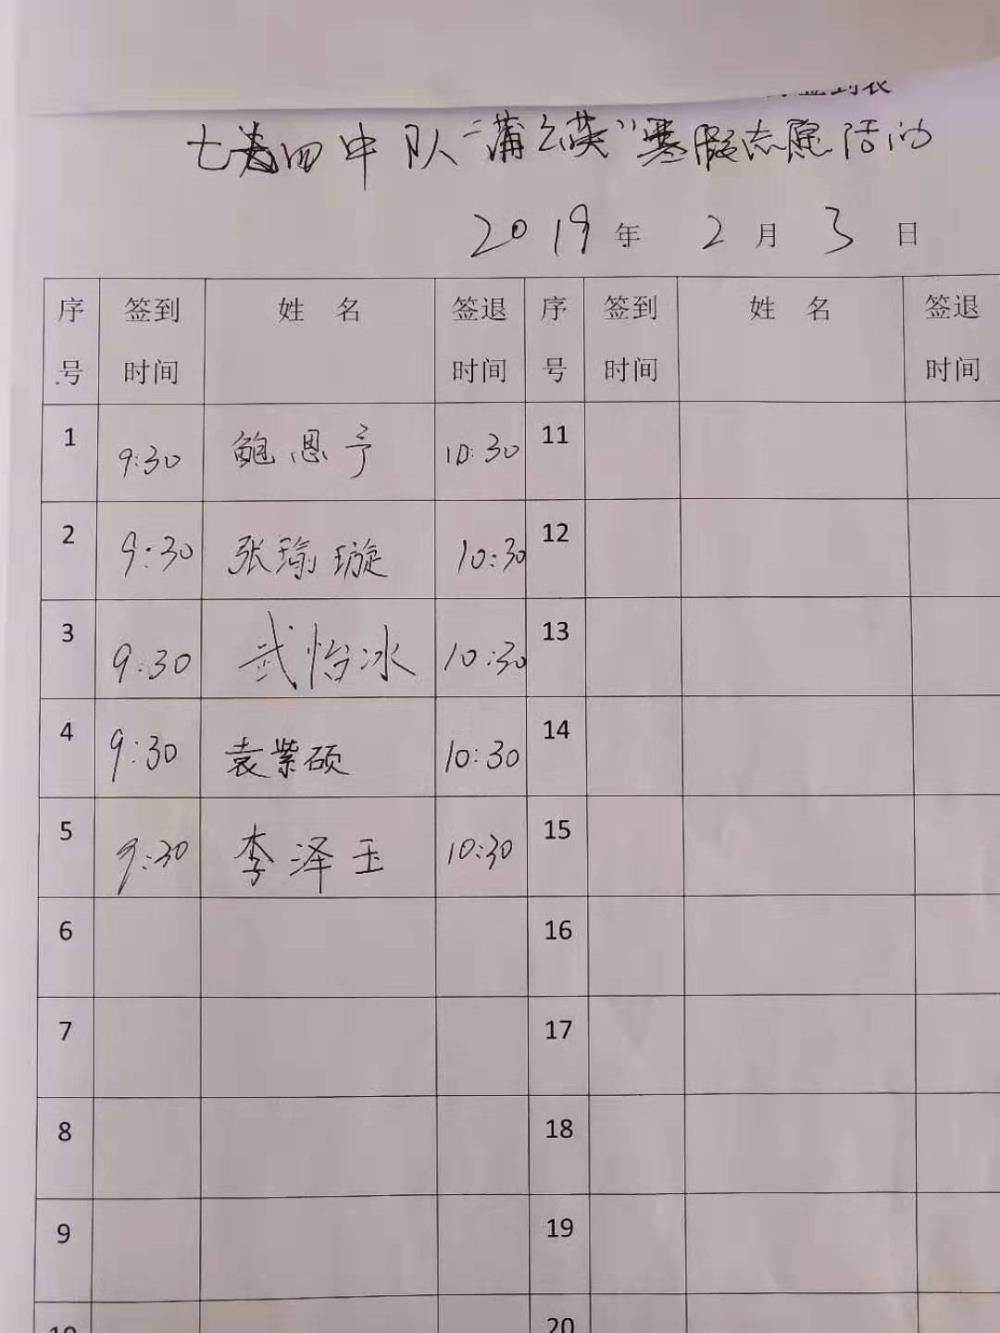 七四中队“蒲公英”寒假志愿活动
2019年 2月 3日
序号 签到时间 姓 名 签退时间 序号 签到时间 姓 名 签退时间
1 9:30 鲍恩予 10:30 11
2 9:30 张瑜璇 10:30 12
3 9:30 武怡冰 10:30 13
4 9:30 袁紫硕 10:30 14
5 9:30 李泽玉 10:30 15
6 16
7 17
8 18
9 19
10 20